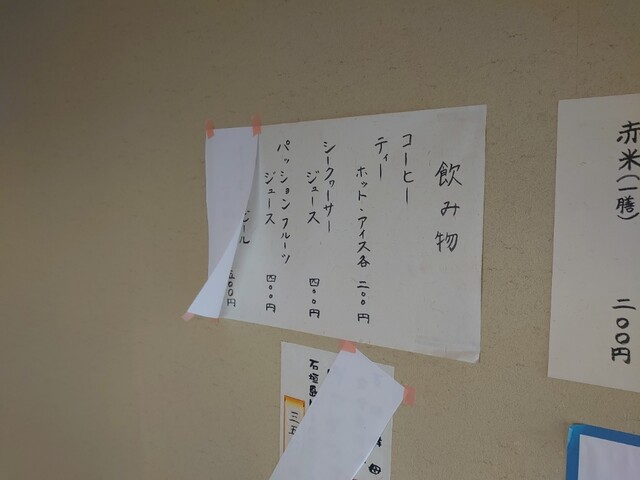 飲み物
コーヒー
ティー
ホット・アイス各 二〇〇円
シークヮーサー
ジュース 四〇〇円
パッションフルーツ
ジュース 四〇〇円
ビール 五〇〇円
赤米(一膳) 二〇〇円
石垣島